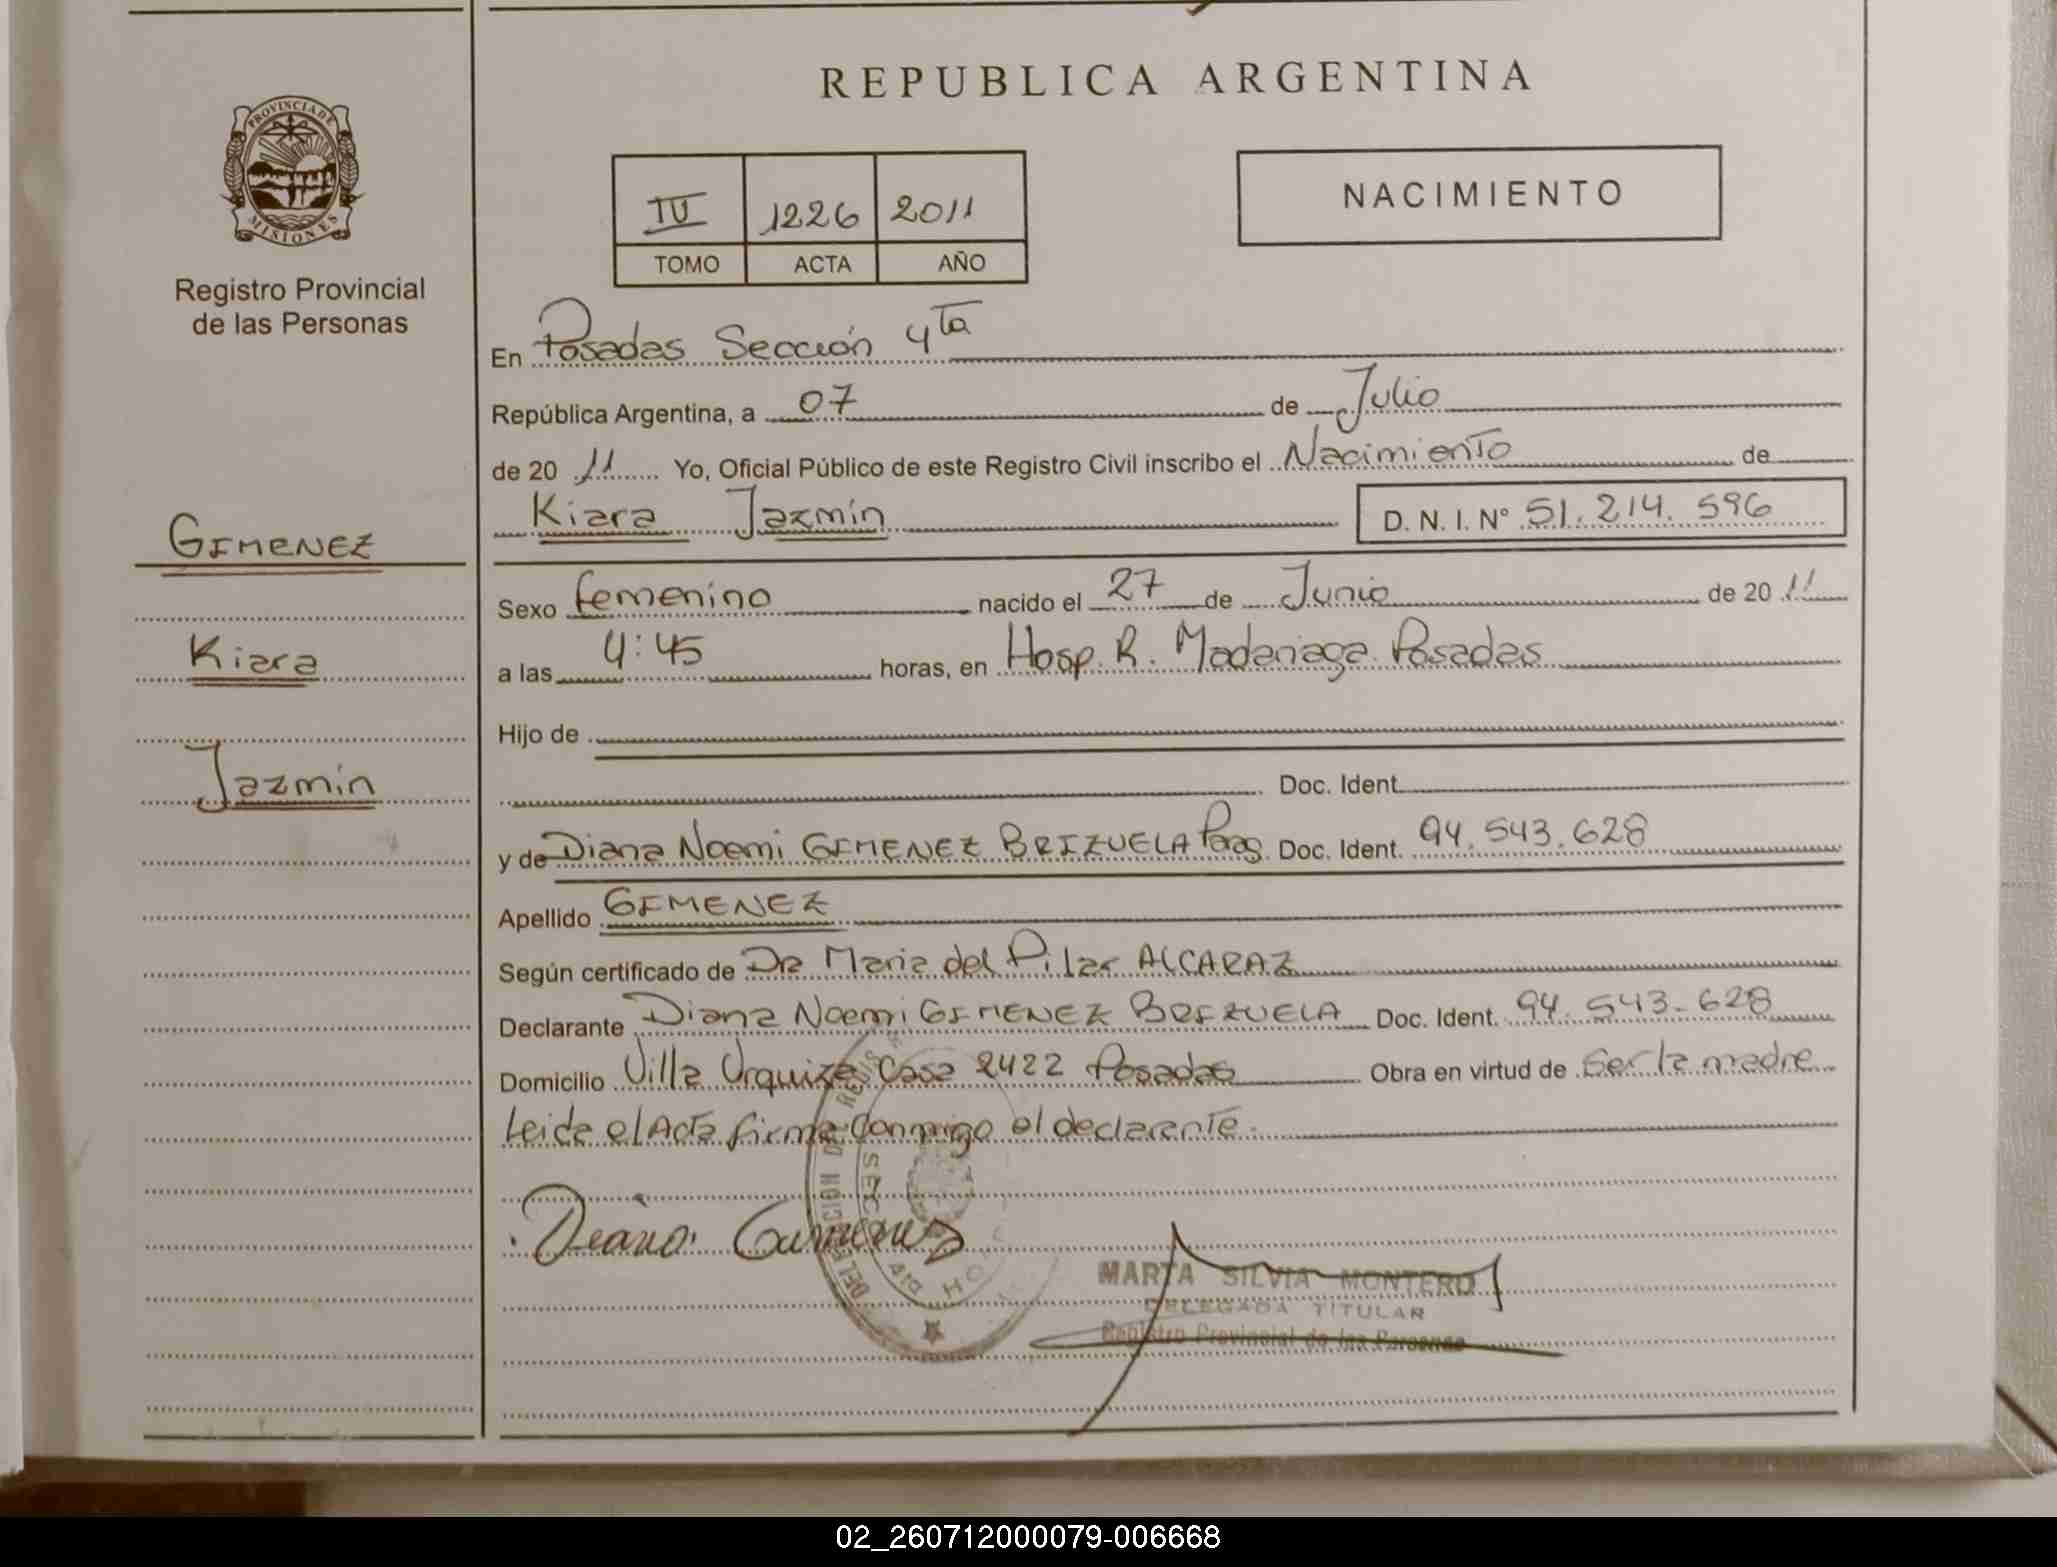 REPUBLICA ARGENTINA
PROVINCIA DE MISIONES
Registro Provincial
de las Personas
IV 1226 2011
TOMO ACTA AÑO
NACIMIENTO
GIMENEZ
Kiara
Jazmín
En Posadas Sección 4ta
República Argentina, a 07 de Julio
de 20 11 Yo, Oficial Público de este Registro Civil inscribo el Nacimiento de
Kiara Jazmín D. N. I. Nº 51.214.596
Sexo femenino nacido el 27 de Junio de 20 11
a las 4:45 horas, en Hosp. R. Madariaga Posadas
Hijo de
Doc. Ident.
y de Diana Noemi GIMENEZ BRIZUELA Parag. Doc. Ident. 94.543.628
Apellido GIMENEZ
Según certificado de Dra Maria del Pilar ALCARAZ
Declarante Diana Noemi GIMENEZ BRIZUELA Doc. Ident. 94.543.628
Domicilio Villa Urquiza Casa 2422 Posadas Obra en virtud de Ser la madre
Leida el Acta firma conmigo el declarante.
Diana Gimenez
MARTA SILVIA MONTERO
DELEGADA TITULAR
Registro Provincial de las Personas
02_260712000079-006668